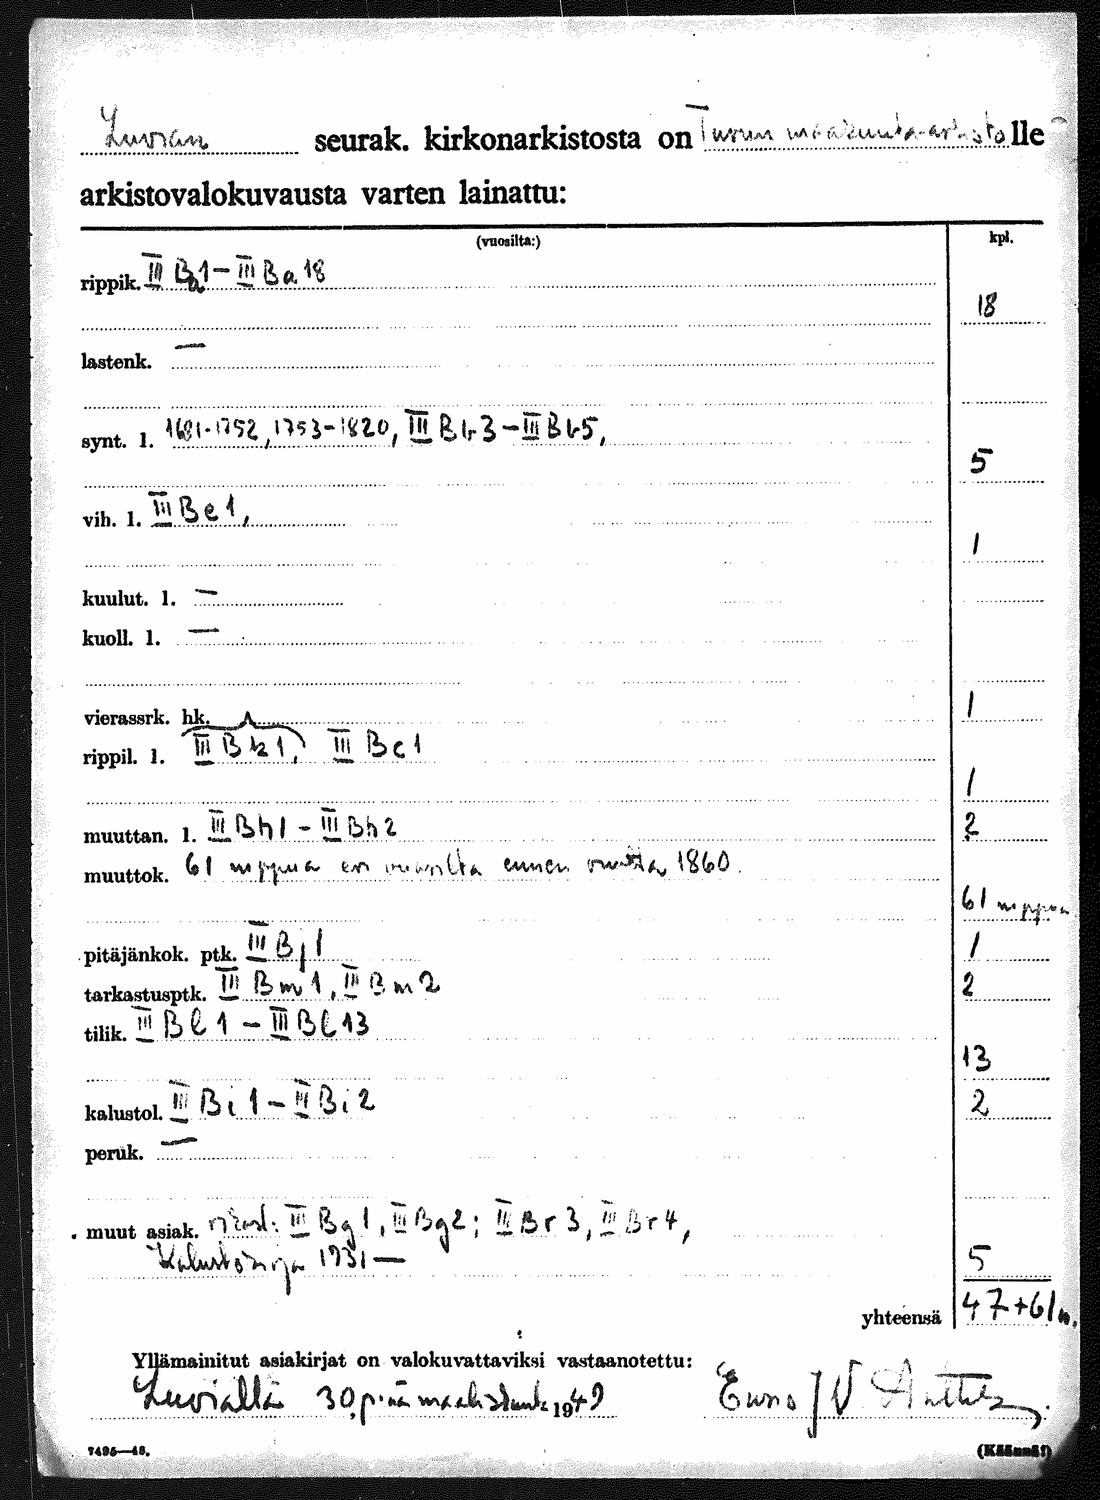 Luvian seurak. kirkonarkistosta on Turun maakunta-arkisto lle
arkistovalokuvausta varten lainattu:
(vuosilta:) kpl.
rippik. III Ba1 – III Ba 18
18
lastenk. —
synt. l. 1681-1752, 1753-1820, III Bb3 – III Bb5,
5
vih. l. III Be 1,
1
kuulut. l. —
kuoll. l. —
vierassrk. hk. 1
rippil. l. III Bk1, III Bc1
1
muuttan. l. III Bh1 – III Bh2 2
muuttok. 61 nippua eri vuosilta ennen vuotta 1860.
61 nippua
pitäjänkok. ptk. III Bj1 1
tarkastusptk. III Bm1, III Bm2 2
tilik. III Bl1 – III Bl13
13
kalustol. III Bi1 – III Bi2 2
peruk. —
muut asiak. III Bg1, III Bg2; III Br3, III Br4,
Kalustokirja 1931 —
5
yhteensä 47+61 n.
Yllämainitut asiakirjat on valokuvattaviksi vastaanotettu:
Luvialla 30 p:nä maaliskuuta 1949
7495—48. (Käännä!)